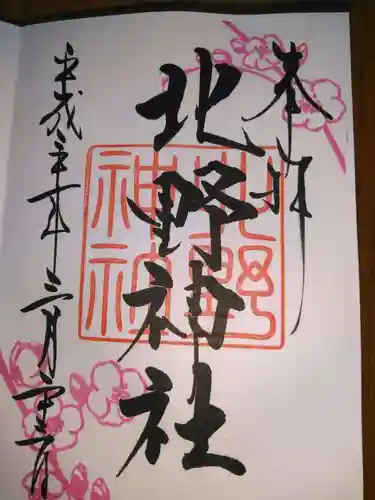 奉拝
北野神社
北野
神社
平成三十年三月二十二日